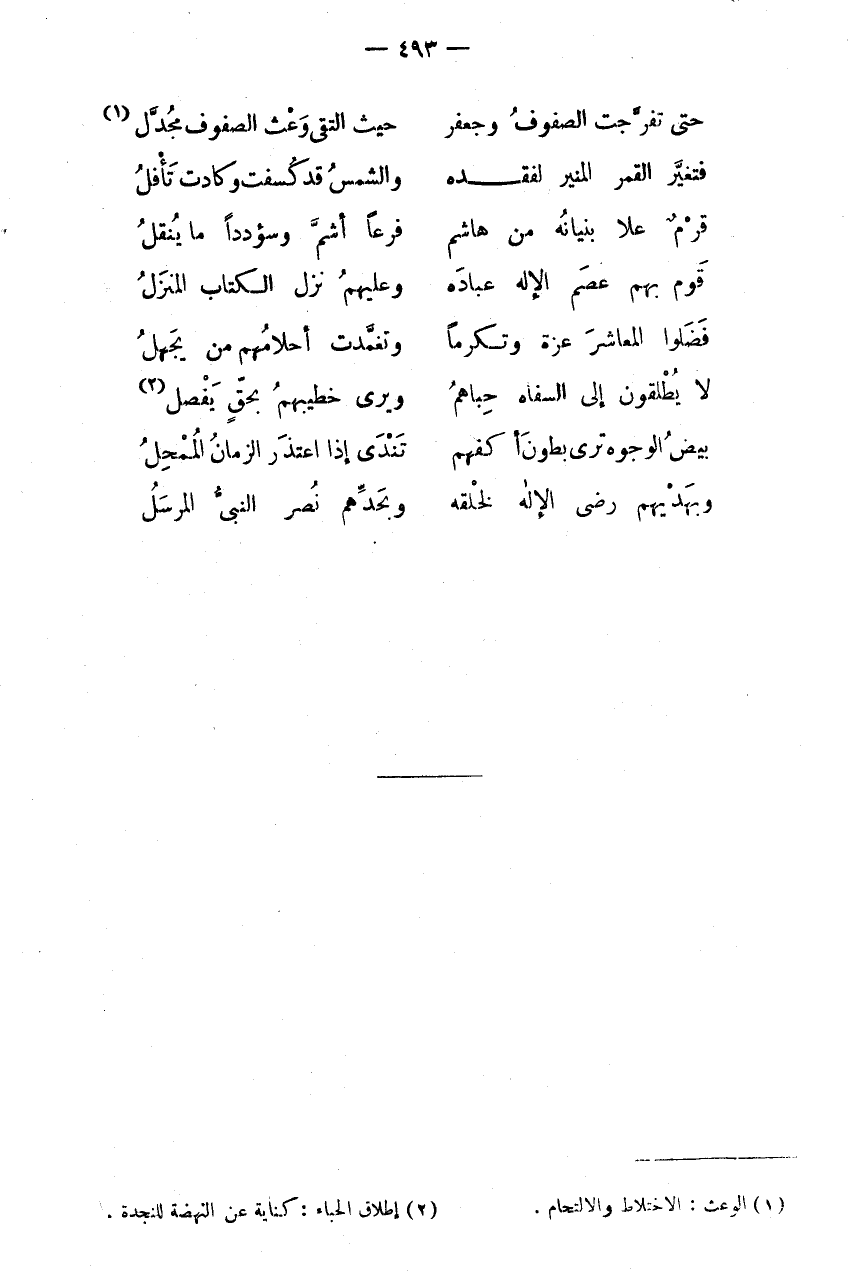 — ٤٩٣ —
حتى تفرَّجت الصفوفُ وجعفر حيث التقى وَعْث الصفوف مُجدَّل (١)
فتغيَّر القمر المنير لفقـــــده والشمسُ قد كُسفت وكادت تَأْفلُ
قرْمٌ علا بنيانُه من هاشم فرعاً أشمَّ وسؤدداً ما يُنقلُ
قَوم بهم عصَم الإله عبادَه وعليهمُ نزل الكتاب المنزَلُ
فَضَلوا المعاشرَ عزة وتكرماً وتغمَّدت أحلامُهم من يَجهلُ
لا يُطْلقون إلى السفاه حِباهمُ ويرى خطيبهمُ بحقّ يَفْصل (٢)
بيضُ الوجوه ترى بطونَ أكفهم تَنْدَى إذا اعتذَر الزمانُ المُمْحِلُ
وبهَدْيهم رضى الإلٰه لخلْقه وبحَدِّهم نُصر النبىُّ المرسَلُ
(١) الوعث : الاختلاط والالتحام . (٢) إطلاق الحباء : كناية عن النهضة للنجدة .